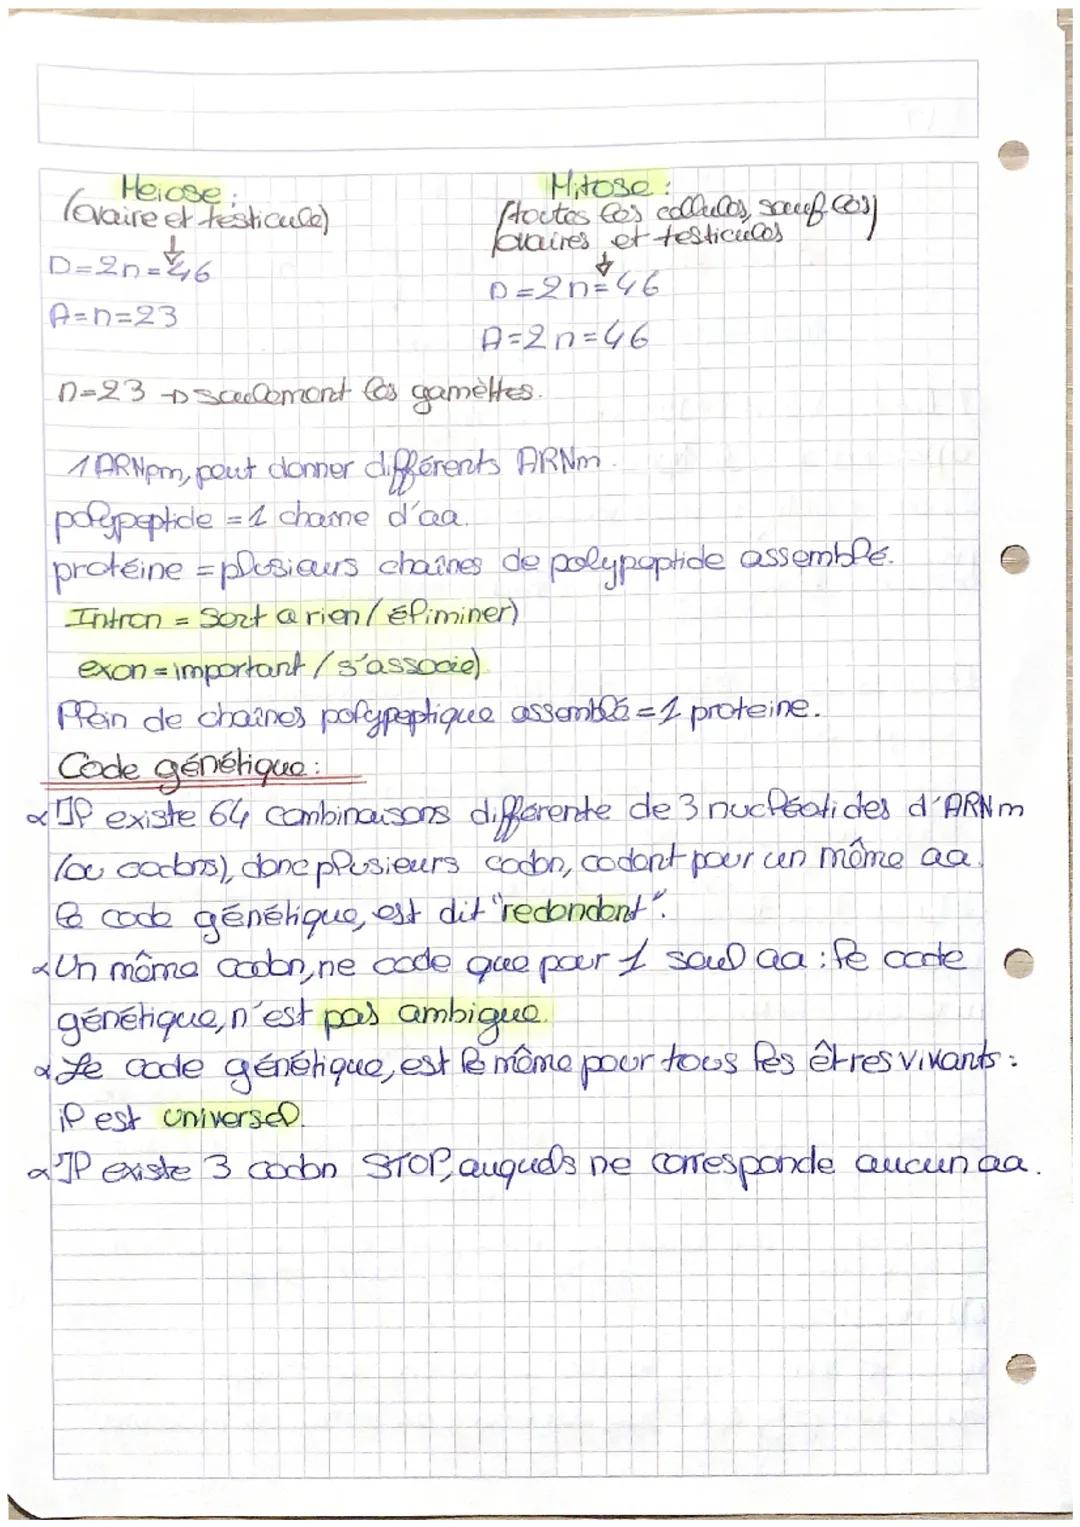 Meiose :
(ovaire et testicule)
↓
D=2n=46
A=n=23
Mitose :
(toutes les cellules, sauf les)
ovaires et testicules
↓
D=2n=46
A=2n=46
n=23 → seulement les gamèttes.
1 ARNpm, peut donner différents ARNm.
polypeptide = 1 chaine d'aa.
protéine = plusieurs chaînes de polypeptide assemblé.
Intron = Sert a rien / éliminer)
exon = important / s'associe)
Plein de chaînes polypeptique assemblé = 1 proteine.
Code génétique :
α Il existe 64 combinaisons différente de 3 nucléotides d'ARNm
(ou codons), donc plusieurs codon, codant pour un même aa.
le code génétique, est dit "redondant".
α Un même codon, ne code que pour 1 seul aa : le code
génétique, n'est pas ambigue.
α Le code génétique, est le même pour tous les êtres vivants :
il est universel.
α Il existe 3 codon STOP, auquels ne corresponde aucun aa.